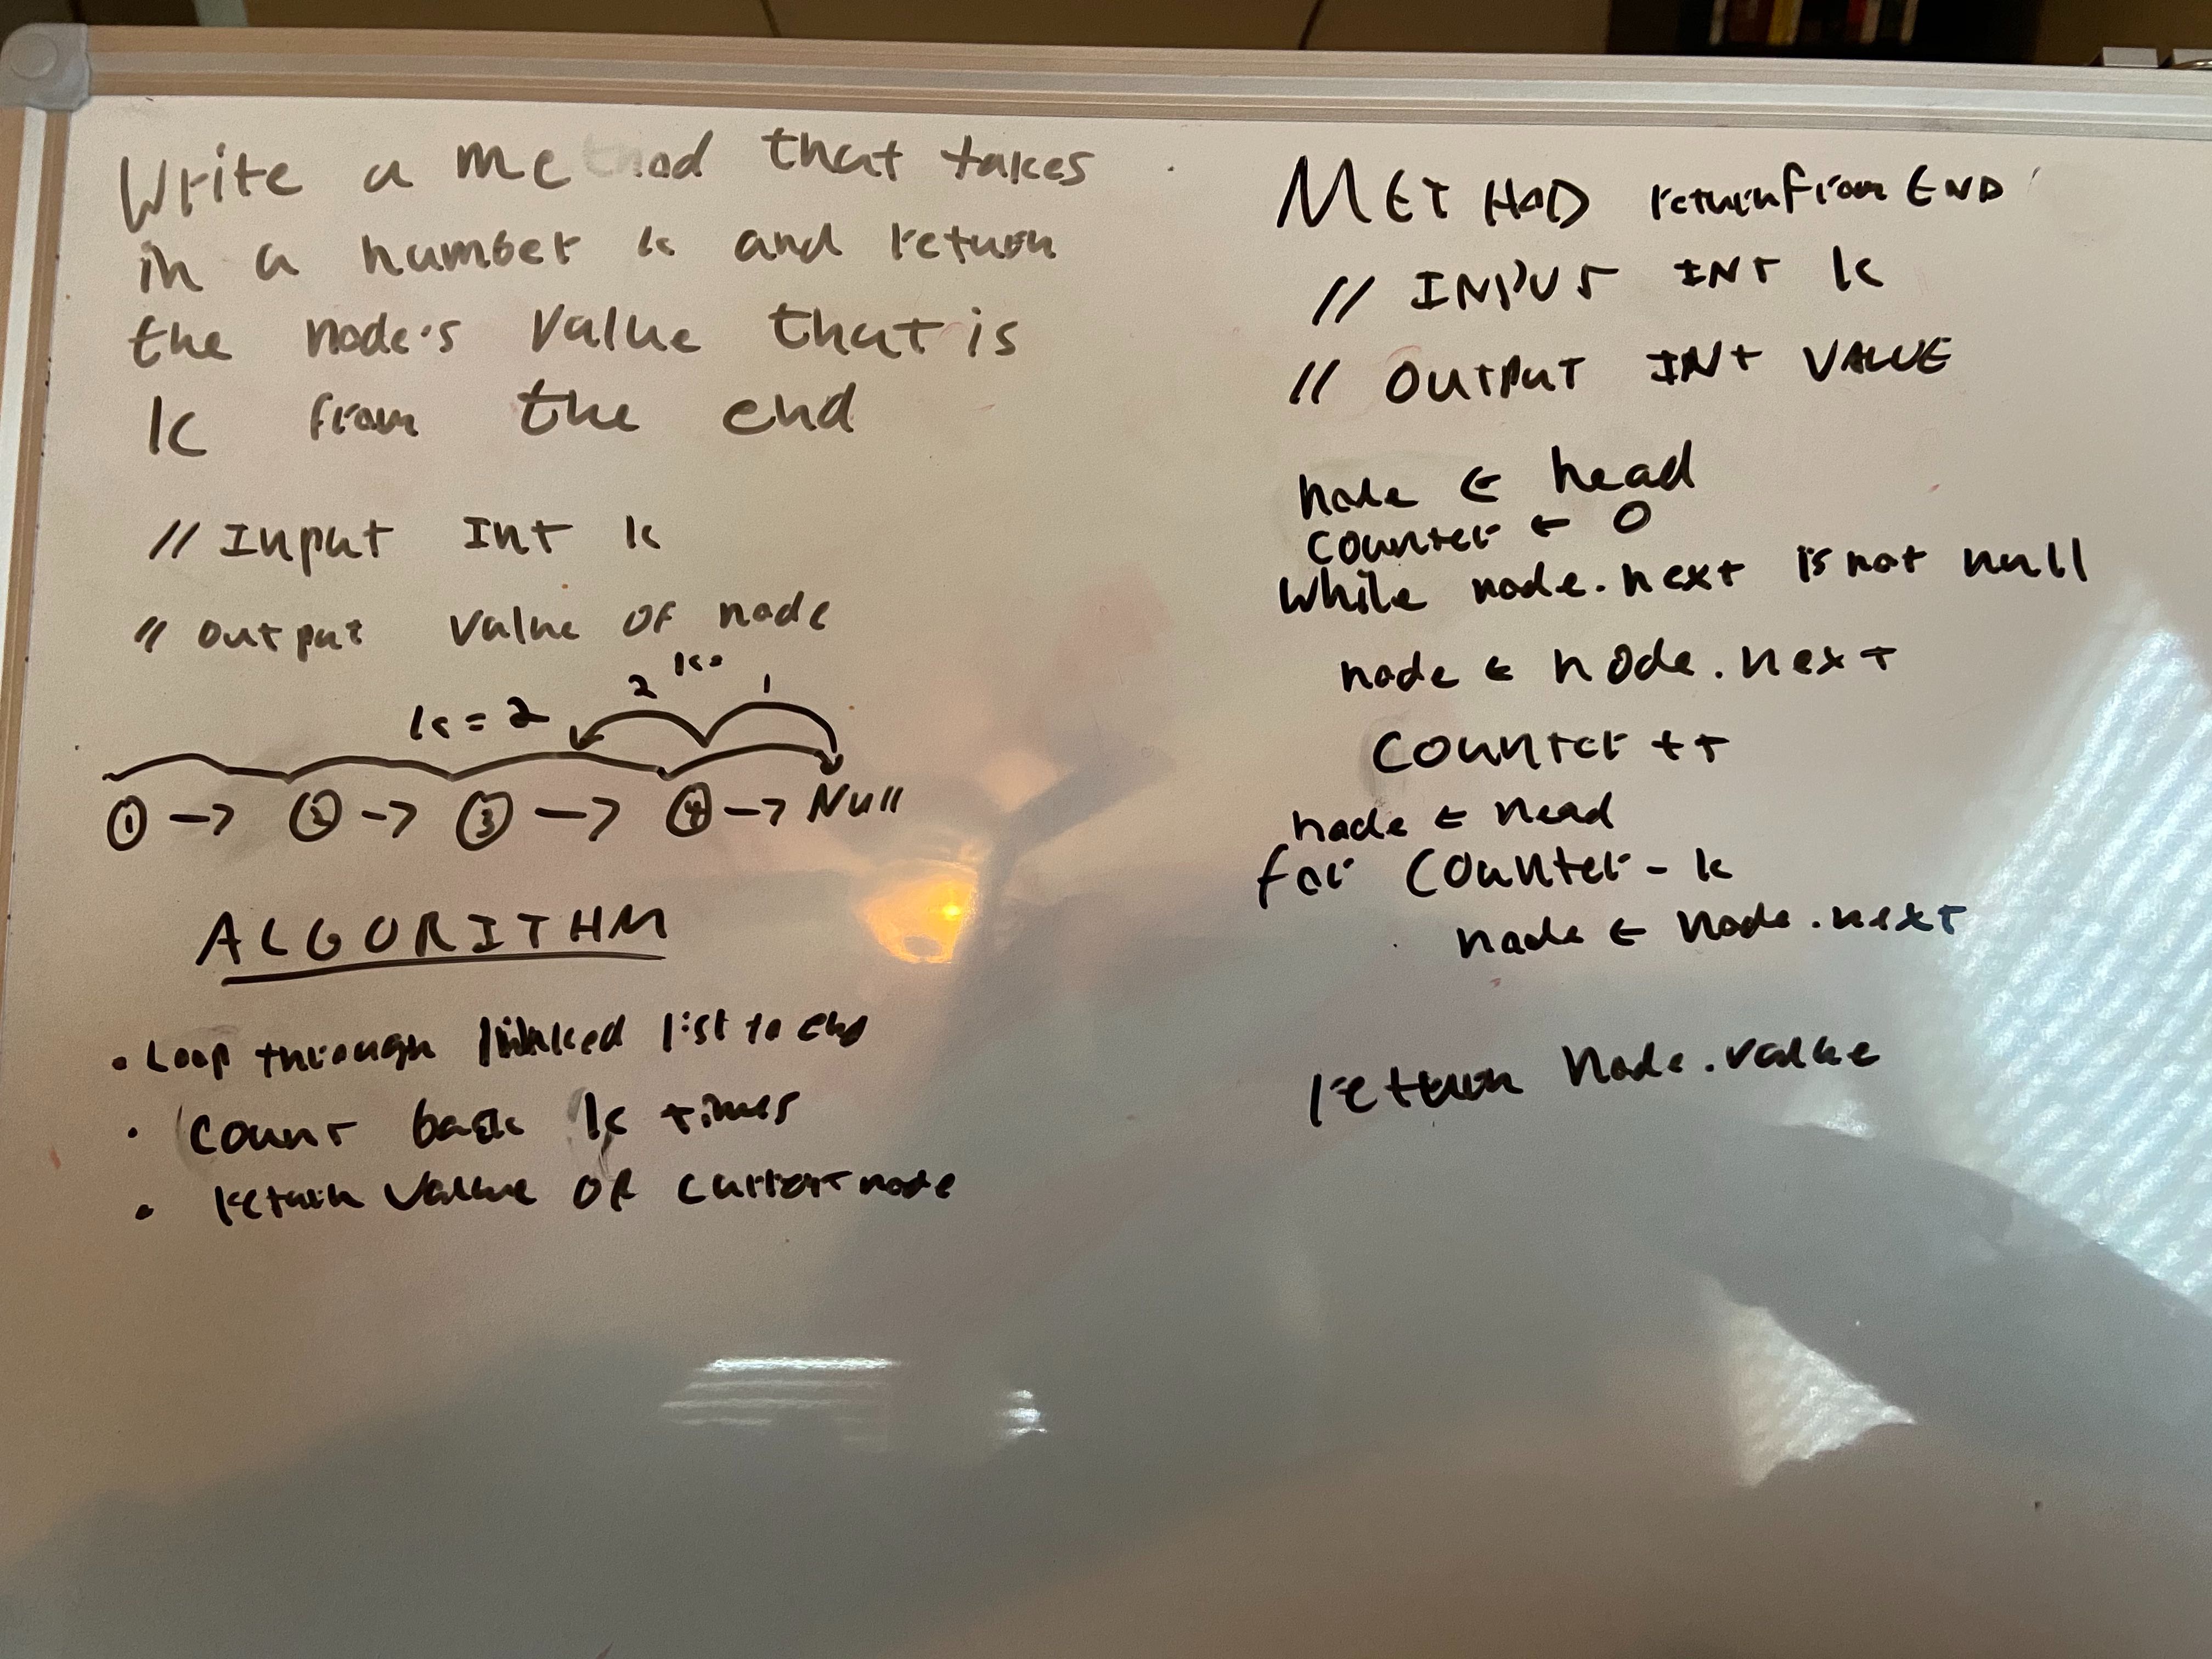 Write a method that takes
in a number k and return
the node's value that is
k from the end
// Input Int k
// output value of node
k=
2 1
k = 2
1 -> 2 -> 3 -> 4 -> Null
ALGORITHM
• Loop through linked list to end
• Count back k times
• return value of current node
METHOD returnfromEND
// INPUT INT k
// OUTPUT INT VALUE
node ← head
counter ← 0
While node.next is not null
node ← node.next
Counter ++
node ← head
for Counter - k
node ← node.next
return Node.value